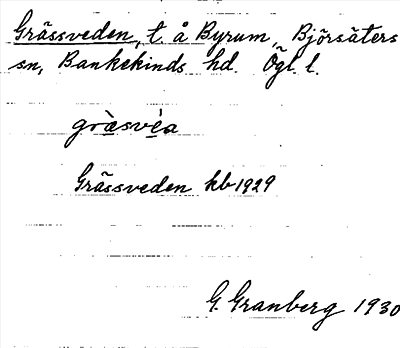 Grässveden, t. å Byrum, Björsäters
sn, Bankekinds hd. Ögl. l.
gràsvéa
Grässveden kb 1929
G. Granberg 1930